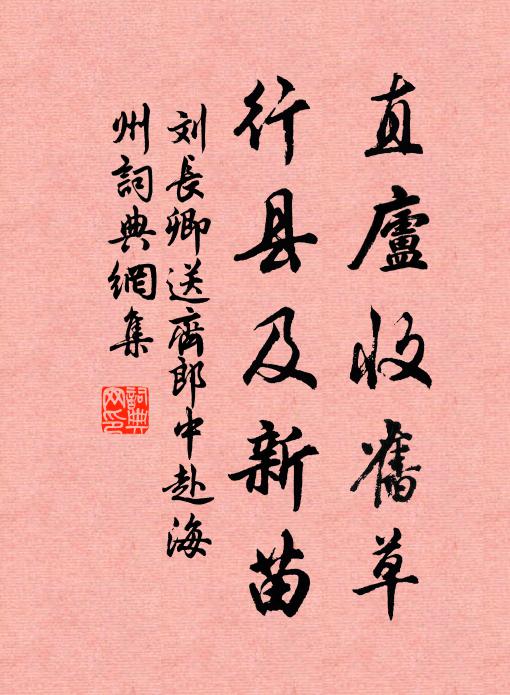 直廬收舊草
行县及新苗
刘長卿送齊郎中赴海
州詞典網集
詞典網印